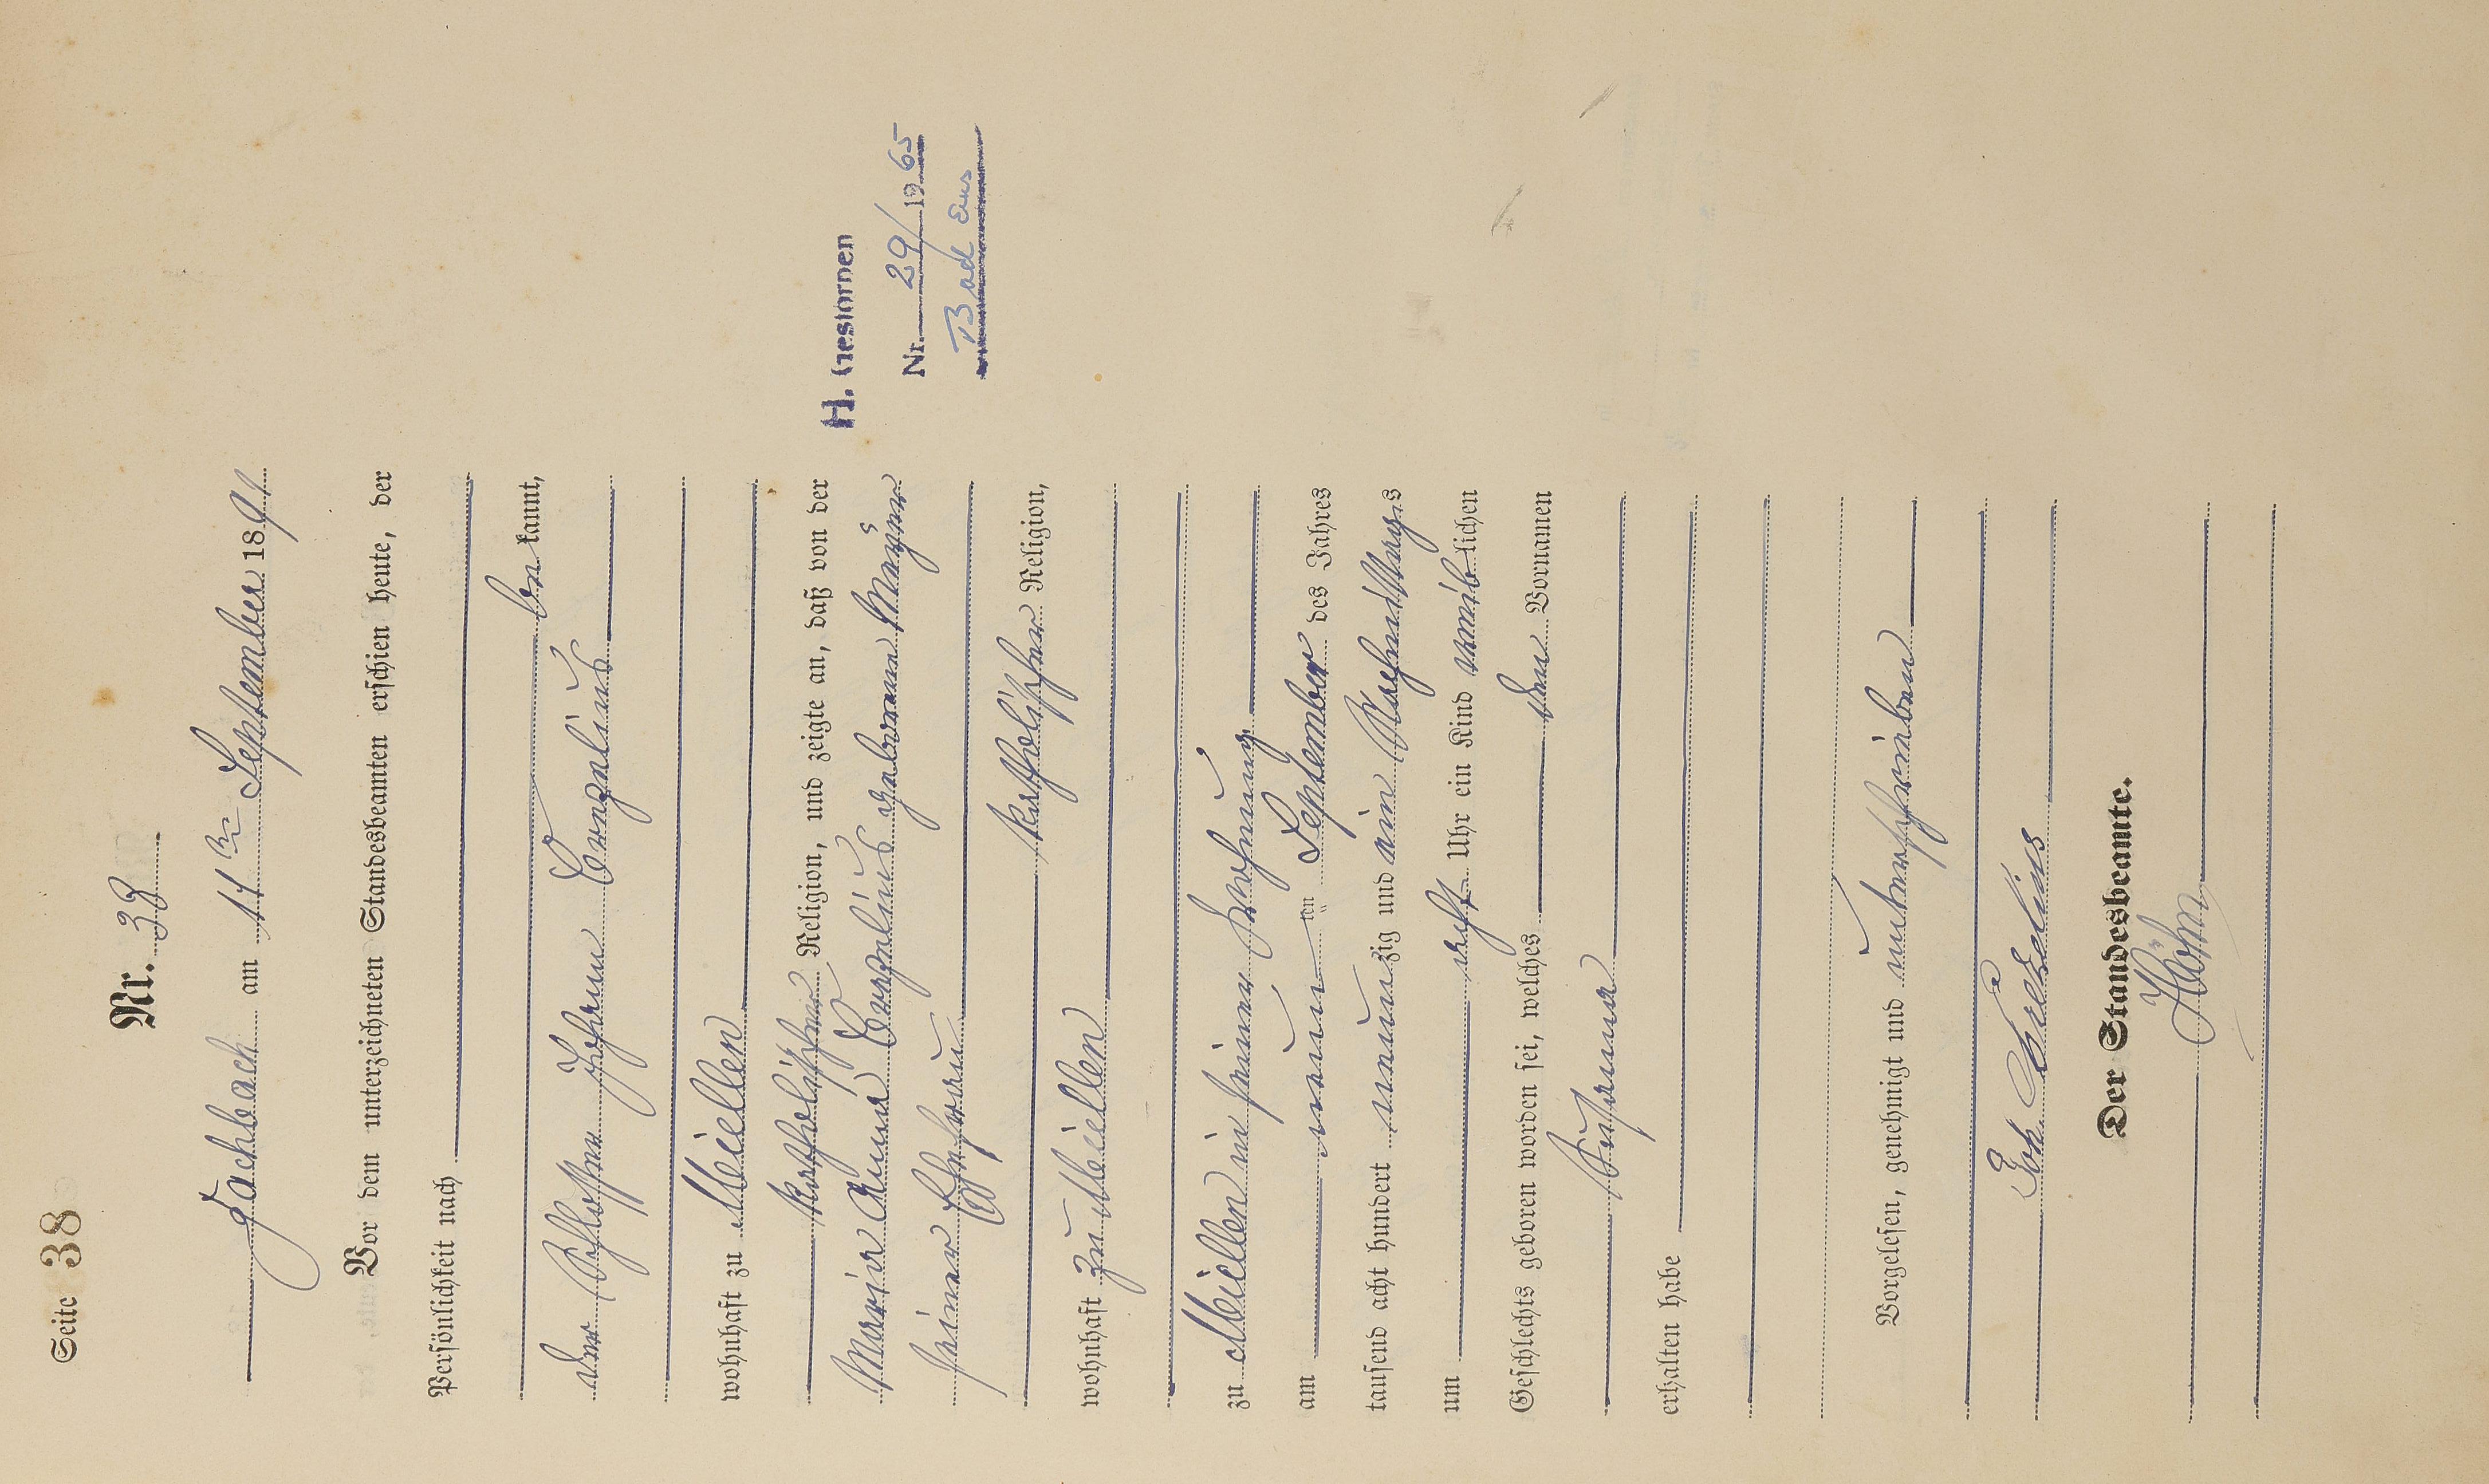 Seite 38
Nr. 38
Fachbach am 11ten September 1891
Vor dem unterzeichneten Standesbeamten erschien heute, der
Persönlichkeit nach
bekannt,
der Schlosser Johann Corzelius
wohnhaft zu Miellen
katholischer Religion, und zeigte an, daß von der
Maria Anna Corzelius geborene
seiner Ehefrau
katholischer Religion,
wohnhaft zu Miellen
zu Miellen in seiner Wohnung
am neunten September des Jahres
tausend acht hundert neunzig und ein Nachmittags
um acht Uhr ein Kind weiblichen
Geschlechts geboren worden sei, welches den Vornamen
erhalten habe
Vorgelesen, genehmigt und unterschrieben
Joh Corzelius
Der Standesbeamte.
Höhn
H. Gestorben
Nr. 29/1965
Bad Ems